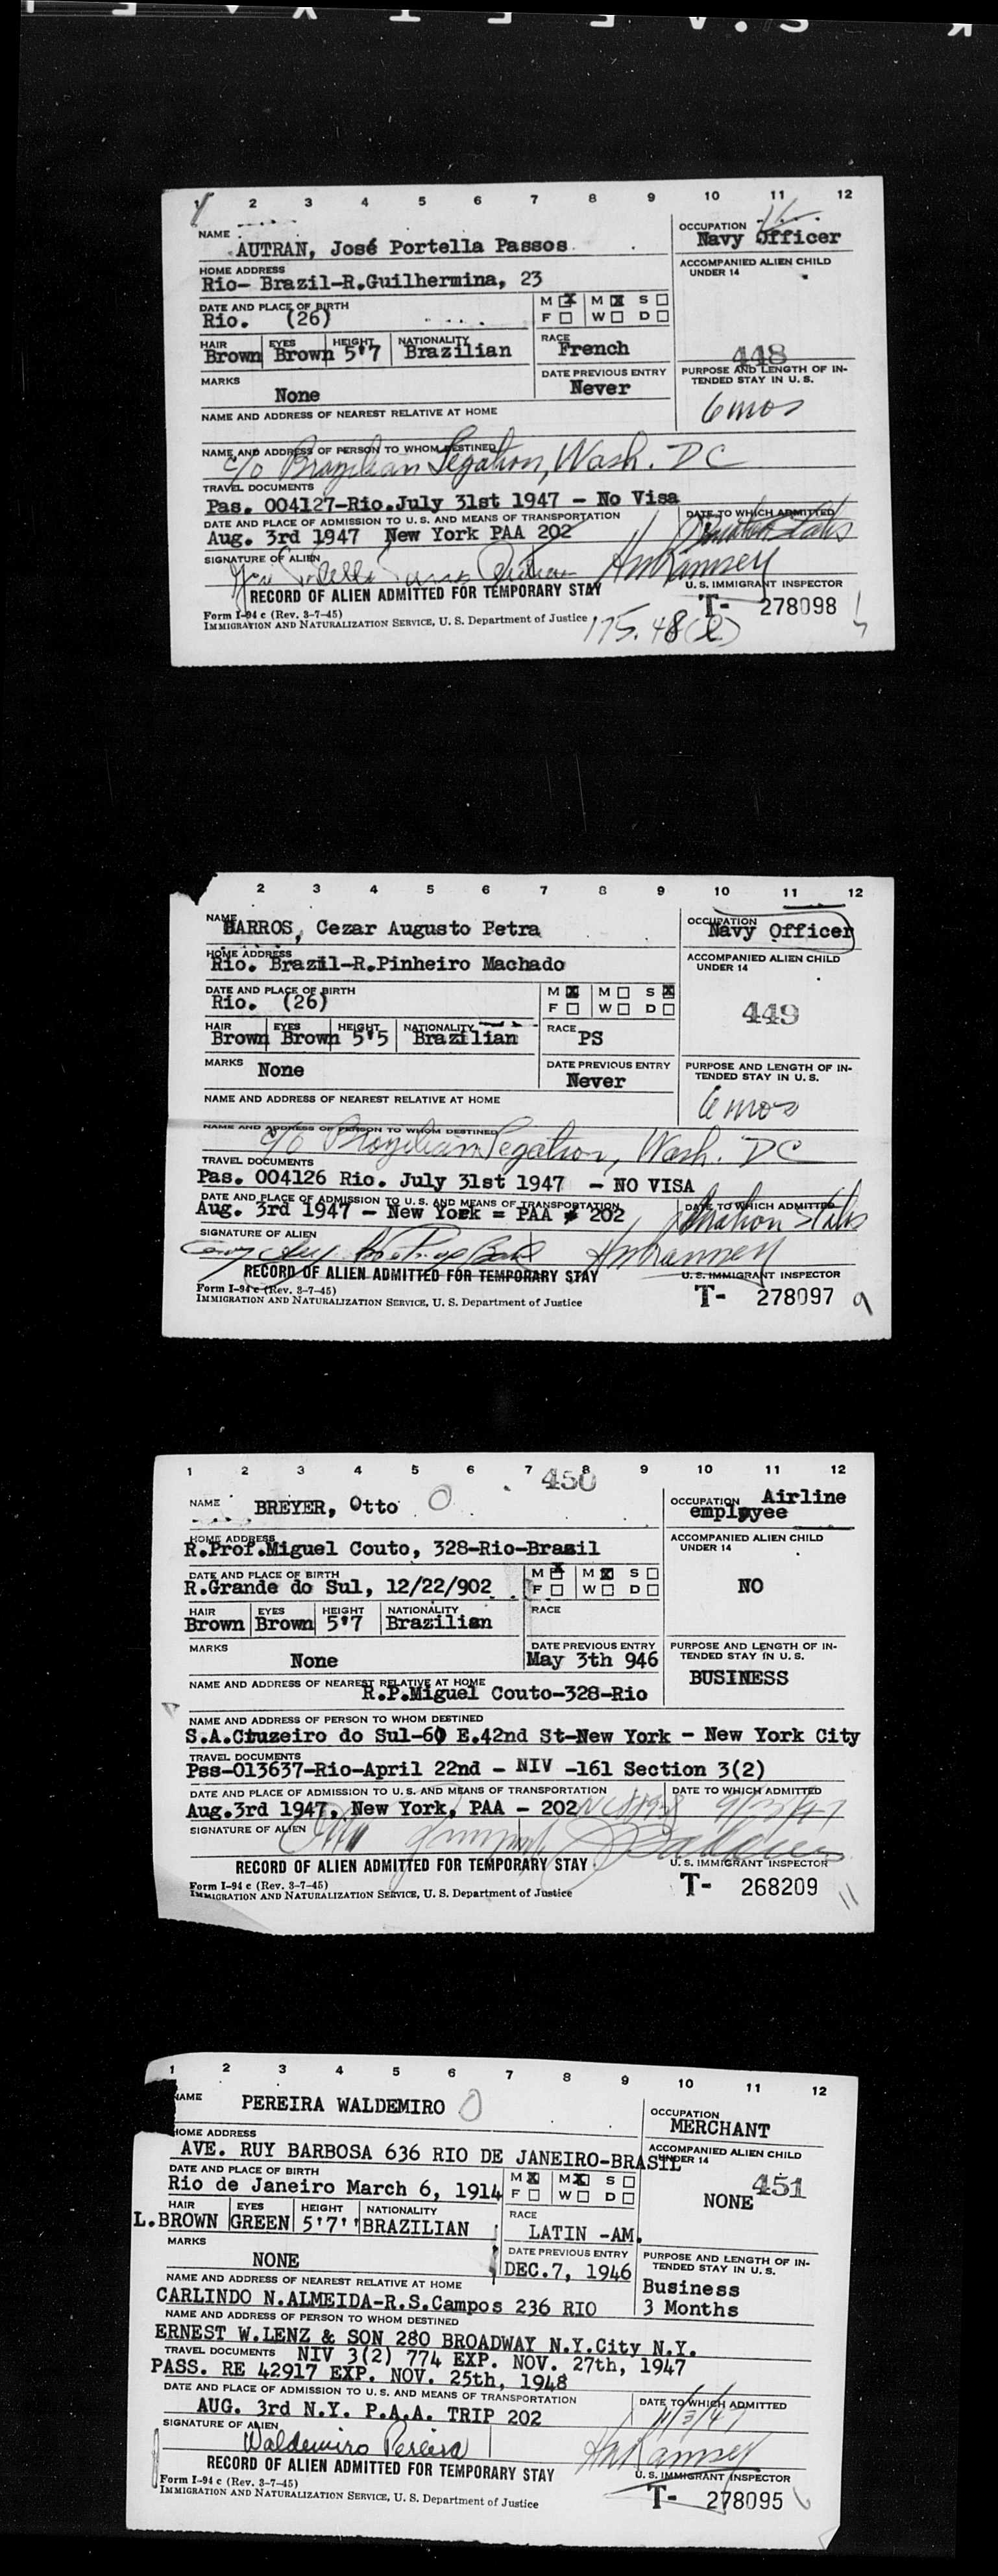 1 2 3 4 5 6 7 8 9 10 11 12
NAME AUTRAN, José Portella Passos
OCCUPATION Navy Officer
HOME ADDRESS Rio- Brazil-R.Guilhermina, 23
ACCOMPANIED ALIEN CHILD UNDER 14
DATE AND PLACE OF BIRTH Rio. (26)
M X M X S
F W D
HAIR Brown EYES Brown HEIGHT 5'7 NATIONALITY Brazilian RACE French
448
MARKS None
DATE PREVIOUS ENTRY Never
PURPOSE AND LENGTH OF INTENDED STAY IN U. S. 6 mos
NAME AND ADDRESS OF NEAREST RELATIVE AT HOME
NAME AND ADDRESS OF PERSON TO WHOM DESTINED
c/o Brazilian Legation, Wash. DC
TRAVEL DOCUMENTS
Pas. 004127-Rio.July 31st 1947 - No Visa
DATE AND PLACE OF ADMISSION TO U. S. AND MEANS OF TRANSPORTATION
DATE TO WHICH ADMITTED
Aug. 3rd 1947 New York PAA 202
SIGNATURE OF ALIEN
HmRamsey
RECORD OF ALIEN ADMITTED FOR TEMPORARY STAY
U. S. IMMIGRANT INSPECTOR
Form I-94 c (Rev. 3-7-45)
IMMIGRATION AND NATURALIZATION SERVICE, U. S. Department of Justice
175.48(2)
T- 278098
2 3 4 5 6 7 8 9 10 11 12
NAME BARROS, Cezar Augusto Petra
OCCUPATION Navy Officer
HOME ADDRESS Rio. Brazil-R.Pinheiro Machado
ACCOMPANIED ALIEN CHILD UNDER 14
DATE AND PLACE OF BIRTH Rio. (26)
M X M S X
F W D
449
HAIR Brown EYES Brown HEIGHT 5'5 NATIONALITY Brazilian RACE PS
MARKS None
DATE PREVIOUS ENTRY Never
PURPOSE AND LENGTH OF INTENDED STAY IN U. S. 6 mos
NAME AND ADDRESS OF NEAREST RELATIVE AT HOME
NAME AND ADDRESS OF PERSON TO WHOM DESTINED
c/o Brazilian Legation, Wash. DC
TRAVEL DOCUMENTS
Pas. 004126 Rio. July 31st 1947 - NO VISA
DATE AND PLACE OF ADMISSION TO U. S. AND MEANS OF TRANSPORTATION
DATE TO WHICH ADMITTED
Aug. 3rd 1947 - New York = PAA # 202
SIGNATURE OF ALIEN
HmRamsey
RECORD OF ALIEN ADMITTED FOR TEMPORARY STAY
U. S. IMMIGRANT INSPECTOR
Form I-94 c (Rev. 3-7-45)
IMMIGRATION AND NATURALIZATION SERVICE, U. S. Department of Justice
T- 278097 9
1 2 3 4 5 6 7 8 9 10 11 12
450
NAME BREYER, Otto
OCCUPATION Airline employee
HOME ADDRESS R.Prof.Miguel Couto, 328-Rio-Brasil
ACCOMPANIED ALIEN CHILD UNDER 14
NO
DATE AND PLACE OF BIRTH R.Grande do Sul, 12/22/902
M X M X S
F W D
HAIR Brown EYES Brown HEIGHT 5'7 NATIONALITY Brazilian RACE
MARKS None
DATE PREVIOUS ENTRY May 3th 946
PURPOSE AND LENGTH OF INTENDED STAY IN U. S. BUSINESS
NAME AND ADDRESS OF NEAREST RELATIVE AT HOME
R.P.Miguel Couto-328-Rio
NAME AND ADDRESS OF PERSON TO WHOM DESTINED
S.A.Cruzeiro do Sul-60 E.42nd St-New York - New York City
TRAVEL DOCUMENTS
Pss-013637-Rio-April 22nd - NIV -161 Section 3(2)
DATE AND PLACE OF ADMISSION TO U. S. AND MEANS OF TRANSPORTATION
DATE TO WHICH ADMITTED
Aug.3rd 1947, New York, PAA - 202
SIGNATURE OF ALIEN
RECORD OF ALIEN ADMITTED FOR TEMPORARY STAY
U. S. IMMIGRANT INSPECTOR
Form I-94 c (Rev. 3-7-45)
IMMIGRATION AND NATURALIZATION SERVICE, U. S. Department of Justice
T- 268209 11
1 2 3 4 5 6 7 8 9 10 11 12
NAME PEREIRA WALDEMIRO
OCCUPATION MERCHANT
HOME ADDRESS
AVE. RUY BARBOSA 636 RIO DE JANEIRO-BRASIL
ACCOMPANIED ALIEN CHILD UNDER 14
NONE 451
DATE AND PLACE OF BIRTH
Rio de Janeiro March 6, 1914
M X M X S
F W D
HAIR L.BROWN EYES GREEN HEIGHT 5'7'' NATIONALITY BRAZILIAN RACE LATIN -AM.
MARKS NONE
DATE PREVIOUS ENTRY DEC.7, 1946
PURPOSE AND LENGTH OF INTENDED STAY IN U. S.
Business
3 Months
NAME AND ADDRESS OF NEAREST RELATIVE AT HOME
CARLINDO N.ALMEIDA-R.S.Campos 236 RIO
NAME AND ADDRESS OF PERSON TO WHOM DESTINED
ERNEST W.LENZ & SON 280 BROADWAY N.Y.City N.Y.
TRAVEL DOCUMENTS NIV 3(2) 774 EXP. NOV. 27th, 1947
PASS. RE 42917 EXP. NOV. 25th, 1948
DATE AND PLACE OF ADMISSION TO U. S. AND MEANS OF TRANSPORTATION
DATE TO WHICH ADMITTED
AUG. 3rd N.Y. P.A.A. TRIP 202
11/3/47
SIGNATURE OF ALIEN
Waldemiro Pereira
HmRamsey
RECORD OF ALIEN ADMITTED FOR TEMPORARY STAY
U. S. IMMIGRANT INSPECTOR
Form I-94 c (Rev. 3-7-45)
IMMIGRATION AND NATURALIZATION SERVICE, U. S. Department of Justice
T- 278095